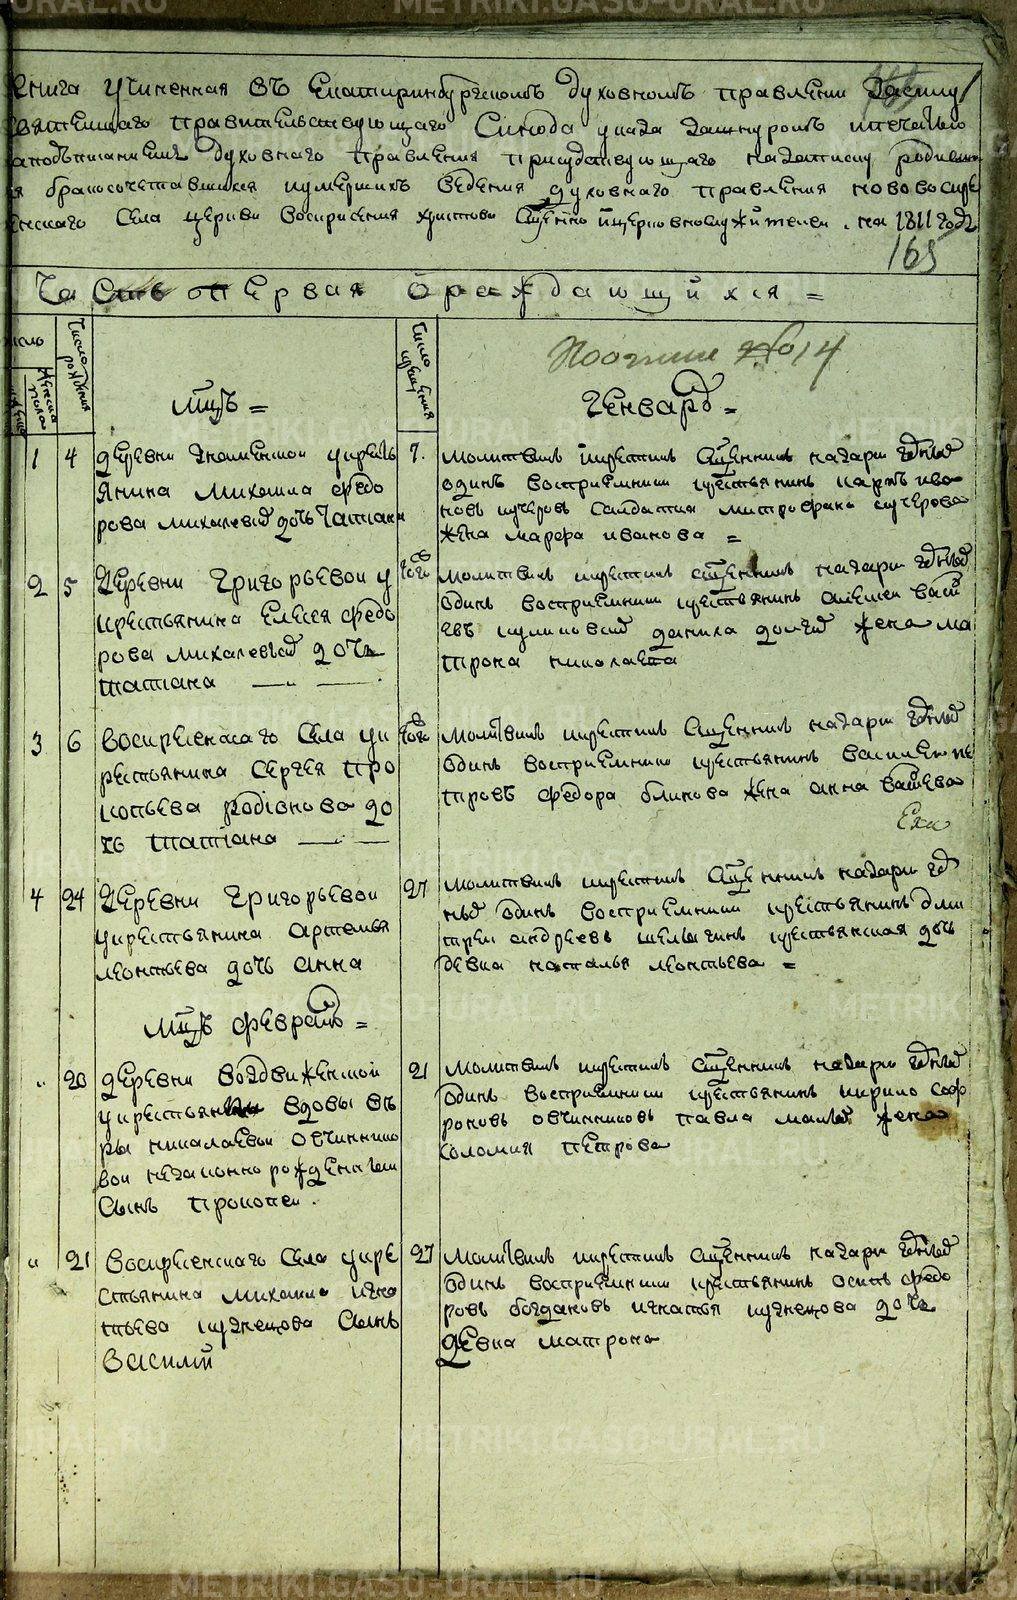 METRIKI.GASO-URAL.RU
Книга учиненная въ Екатиринбургскомъ духовномъ правлении
святейшаго правительствующаго Синода указа за шнуромъ и печатью
а подъписаниемъ духовнаго правления присудствующаго на записку
я бракосочетавшихся и умершихъ ведения духовнаго правления нововоскре
сенскаго села церкви воскресения христова и церковнослужителеи . на 1811 годъ
165
Часть первая о раждающихся =
число рождения
число крещения
женска пола
По описи № 14
Мцъ =
Генварь =
1 4
деревни знаменской у кресть
янина михаила федо
рова михалевых дочь татиана
7.
молитвилъ и крестилъ священникъ назари
одинъ восприемники крестьянинъ карпъ ива
новъ кучеровъ салдатка митрофана кучерова
жена марфа иванова =
2 5
Деревни григорьевои у
крестьянина елисея федо
рова михалевых дочь
татиана
того
молитвилъ и крестилъ священникъ назари
одинъ восприемники крестьянинъ алексеи васи
евъ куликовых данила долгих жена ма
трона николаева
3 6
воскресенскаго села у к
рестьянина сергея про
копьева родионова до
чь татиана
того
молитвилъ и крестилъ священникъ назари
одинъ восприемники крестьянинъ василеи пе
тровъ федора блинова жена анна васильева
4 24
Деревни григорьевои
у крестьянина артемья
леонтьева дочь анна
27
молитвилъ и крестилъ священникъ назари
одинъ восприемники крестьянинъ дми
треи андреевъ шелыгинъ крестьянская дочь
девка наталья леонтьева =
Мцъ февраль =
" 20
деревни воздвиженской
у крестьянки вдовы въ
ры николаевои овчиннико
вои незаконно рожденныи
сынъ прокопеи .
21
молитвилъ и крестилъ священникъ назари
одинъ восприемники крестьянинъ кирило соф
роновъ овчинниковъ павла малых жена
соломия петрова
" 21
воскресенскаго села у кре
стьянина михаила игна
тьева кузнецова сынъ
василий
27
молитвилъ и крестилъ священникъ назари
одинъ восприемники крестьянинъ осипъ федо
ровъ богдановъ игнатья кузнецова дочь
девка матрона
METRIKI.GASO-URAL.RU